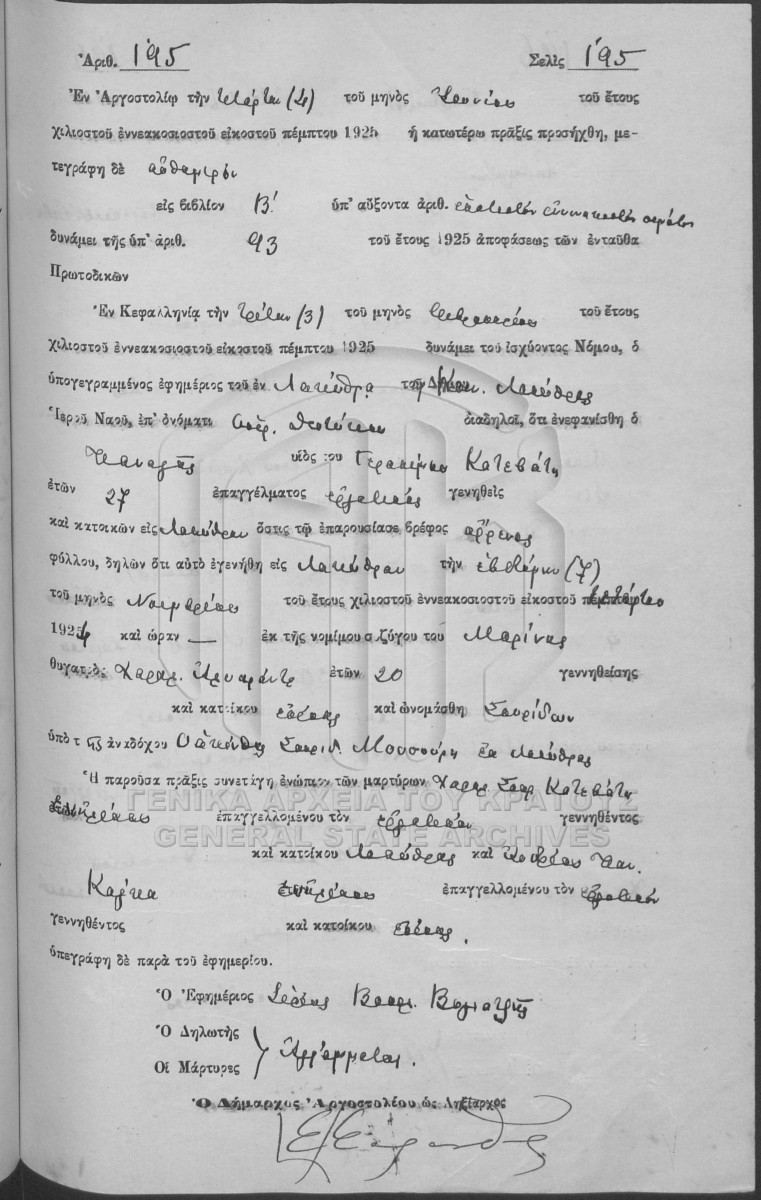 Ἀριθ. 195 Σελὶς 195
Ἐν Ἀργοστολίῳ τὴν τετάρτην (4) τοῦ μηνὸς Ἰουνίου τοῦ ἔτους
χιλιοστοῦ ἐννεακοσιοστοῦ εἰκοστοῦ πέμπτου 1925 ἡ κατωτέρω πρᾶξις προσήχθη, με-
τεγράφη δὲ αὐθημερὸν
εἰς βιβλίον Β΄ ὑπ' αὔξοντα ἀριθ. ἑκατοστὸν ἐννενηκοστὸν πέμπτον
δυνάμει τῆς ὑπ' ἀριθ. 93 τοῦ ἔτους 1925 ἀποφάσεως τῶν ἐνταῦθα
Πρωτοδικῶν
Ἐν Κεφαλληνίᾳ τὴν τρίτην (3) τοῦ μηνὸς Φεβρουαρίου τοῦ ἔτους
χιλιοστοῦ ἐννεακοσιοστοῦ εἰκοστοῦ πέμπτου 1925 δυνάμει τοῦ ἰσχύοντος Νόμου, ὁ
ὑπογεγραμμένος ἐφημέριος τοῦ ἐν Λακύθρᾳ τοῦ Κοιν. Λακύθρας
Ἱεροῦ Ναοῦ, ἐπ' ὀνόματι Θεοτόκου διαδηλοῖ, ὅτι ἐνεφανίσθη ὁ
Παναγῆς υἱὸς του Γερασίμου Κατεβάτη
ἐτῶν 27 ἐπαγγέλματος ἐργατικὸς γενηθεὶς
καὶ κατοικῶν εἰς Λακύθραν ὅστις τῷ ἐπαρουσίασε βρέφος ἄρρενος
φύλλου, δηλῶν ὅτι αὐτὸ ἐγενήθη εἰς Λακύθραν τὴν ἑβδόμην (7)
τοῦ μηνὸς Νοεμβρίου τοῦ ἔτους χιλιοστοῦ ἐννεακοσιοστοῦ εἰκοστοῦ τετάρτου
1924 καὶ ὥραν — ἐκ τῆς νομίμου συζύγου τοῦ Μαρίνης
θυγατρὸς Χαραλ. ἐτῶν 20 γεννηθείσης
καὶ κατοίκου ἐδῶ καὶ ὠνομάσθη Σπυρίδων
ὑπὸ τῆς ἀναδόχου Σπυριδ. Μουσούρη ἐκ Λακύθρας
Ἡ παροῦσα πρᾶξις συνετάγη ἐνώπιον τῶν μαρτύρων Χαραλ. Σπυρ. Κατεβάτη
ἐνήλικος ἐπαγγελλομένου τὸν ἐργατικὸν γεννηθέντος
καὶ κατοίκου Λακύθρας καὶ Παν.
Καλίκα ἐνήλικος ἐπαγγελλομένου τὸν ἐργατικὸν
γεννηθέντος καὶ κατοίκου
ὑπεγράφη δὲ παρὰ τοῦ ἐφημερίου.
Ὁ Ἐφημέριος Ἱερεὺς
Ὁ Δηλωτὴς
Οἱ Μάρτυρες } Ἀγράμματοι.
Ὁ Δήμαρχος Ἀργοστολίου ὡς Ληξίαρχος
ΓΕΝΙΚΑ ΑΡΧΕΙΑ ΤΟΥ ΚΡΑΤΟΥΣ
GENERAL STATE ARCHIVES